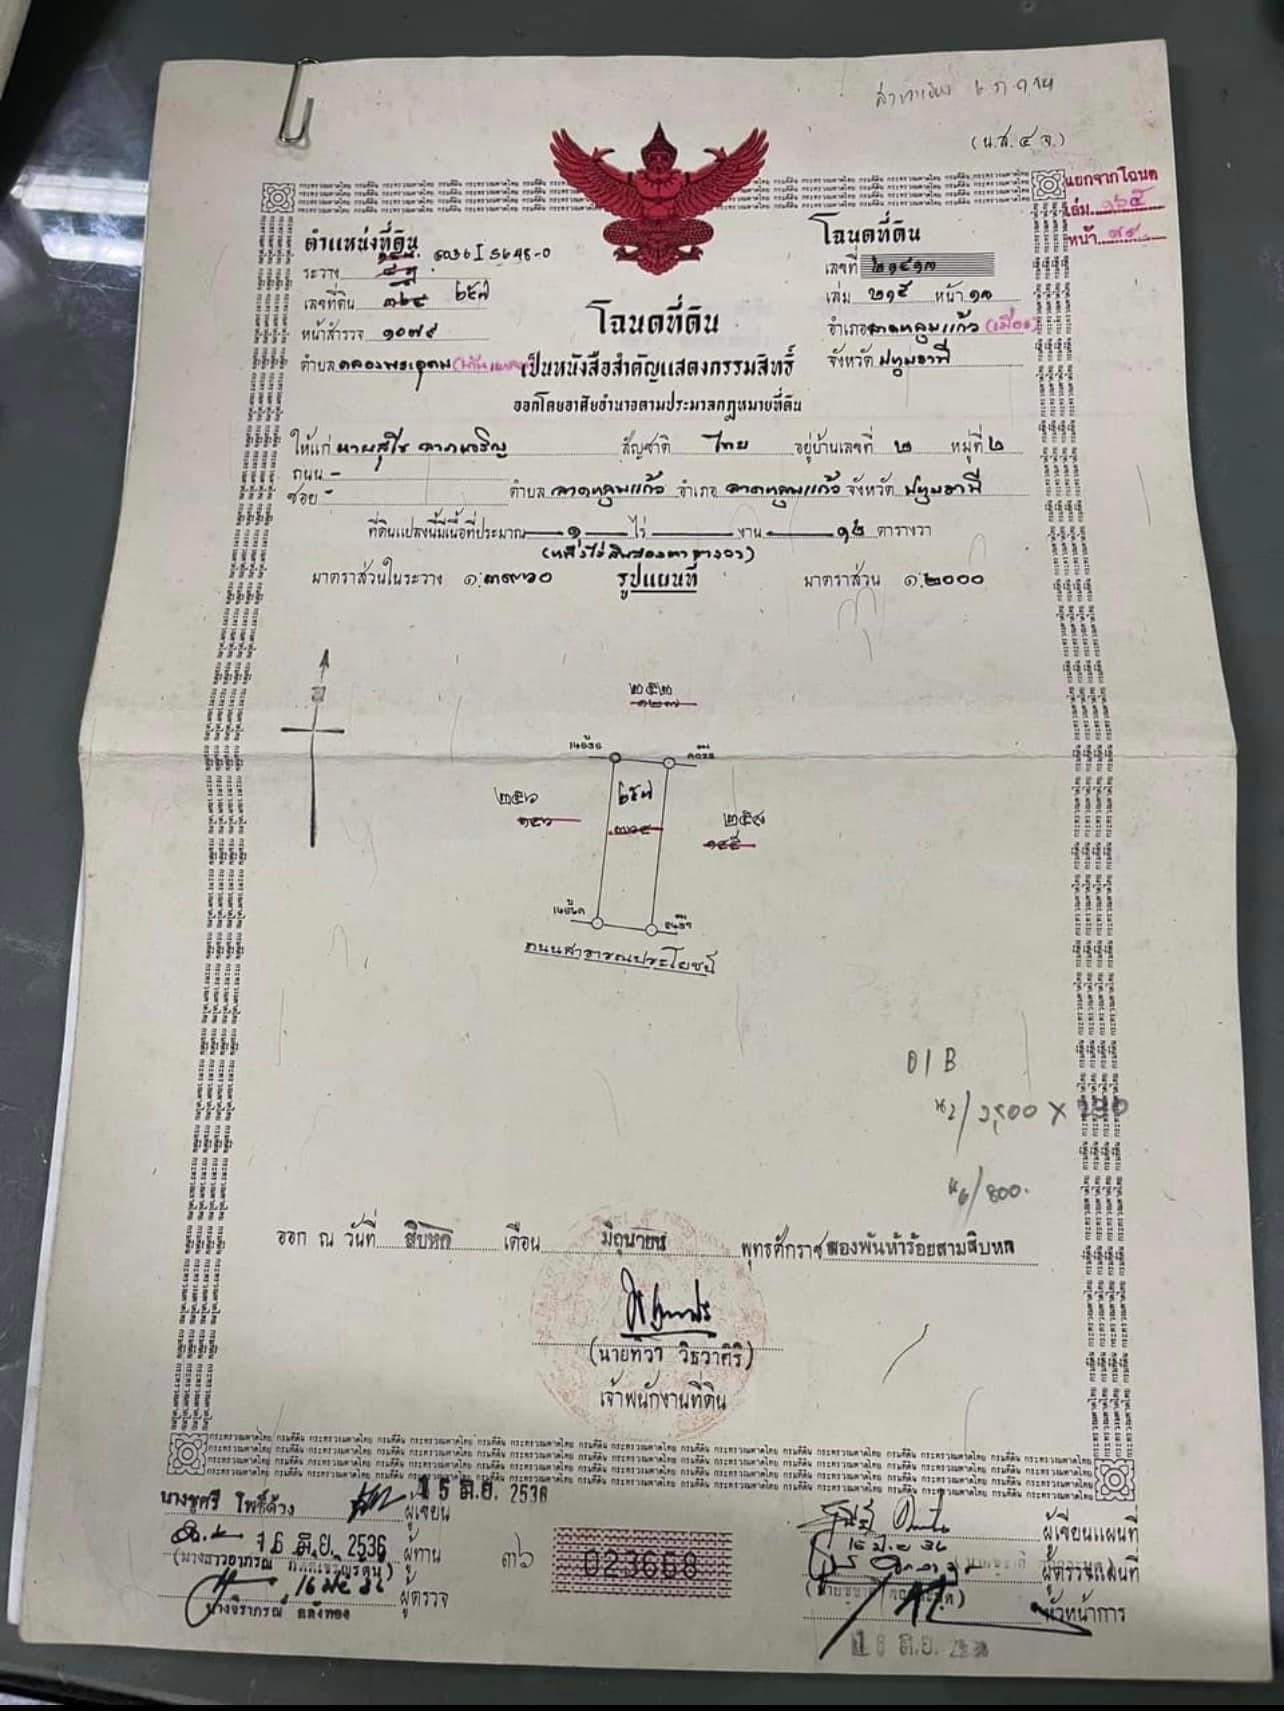 (น.ส. ๔ จ.)
แยกจากโฉนด
เล่ม
หน้า
ตำแหน่งที่ดิน
ระวาง 5036 I 5648-0
เลขที่ดิน ๒๕๗
หน้าสำรวจ ๑๐๗๙
ตำบล คลองพระอุดม
โฉนดที่ดิน
เลขที่ ๒๑๔๑๓
เล่ม ๒๑๕ หน้า ๑๓
อำเภอ ลาดหลุมแก้ว (เมือง)
จังหวัด ปทุมธานี
โฉนดที่ดิน
เป็นหนังสือสำคัญแสดงกรรมสิทธิ์
ออกโดยอาศัยอำนาจตามประมวลกฎหมายที่ดิน
ให้แก่ สัญชาติ ไทย อยู่บ้านเลขที่ ๒ หมู่ที่ ๒
ถนน -
ซอย - ตำบล ลาดหลุมแก้ว อำเภอ ลาดหลุมแก้ว จังหวัด ปทุมธานี
ที่ดินแปลงนี้มีเนื้อที่ประมาณ ๑ ไร่ งาน ๑๒ ตารางวา
(หนึ่งไร่สิบสองตารางวา)
มาตราส่วนในระวาง ๑:๓๙๖๐ รูปแผนที่ มาตราส่วน ๑:๒๐๐๐
๒๕๒
๑๒๗
๒๕๗
๒๕๖
๑๕๖
๓๖๔
๒๕๘
๑๕๕
ถนนสาธารณประโยชน์
01 B
2,500 X
800.
ออก ณ วันที่ สิบหก เดือน มิถุนายน พุทธศักราช สองพันห้าร้อยสามสิบหก
(นายทิวา วิธวาศิริ)
เจ้าพนักงานที่ดิน
นางชูศรี โพธิ์ด้วง ผู้เขียน
16 มิ.ย. 2536
16 มิ.ย. 2536 ผู้ทาน
16 มิย 36 ผู้ตรวจ
นางจิราภรณ์ คลังทอง
๓๖
023668
ผู้เขียนแผนที่
16 มิ.ย 36
ผู้ตรวจแผนที่
หัวหน้าการ
16 มิ.ย. 2536